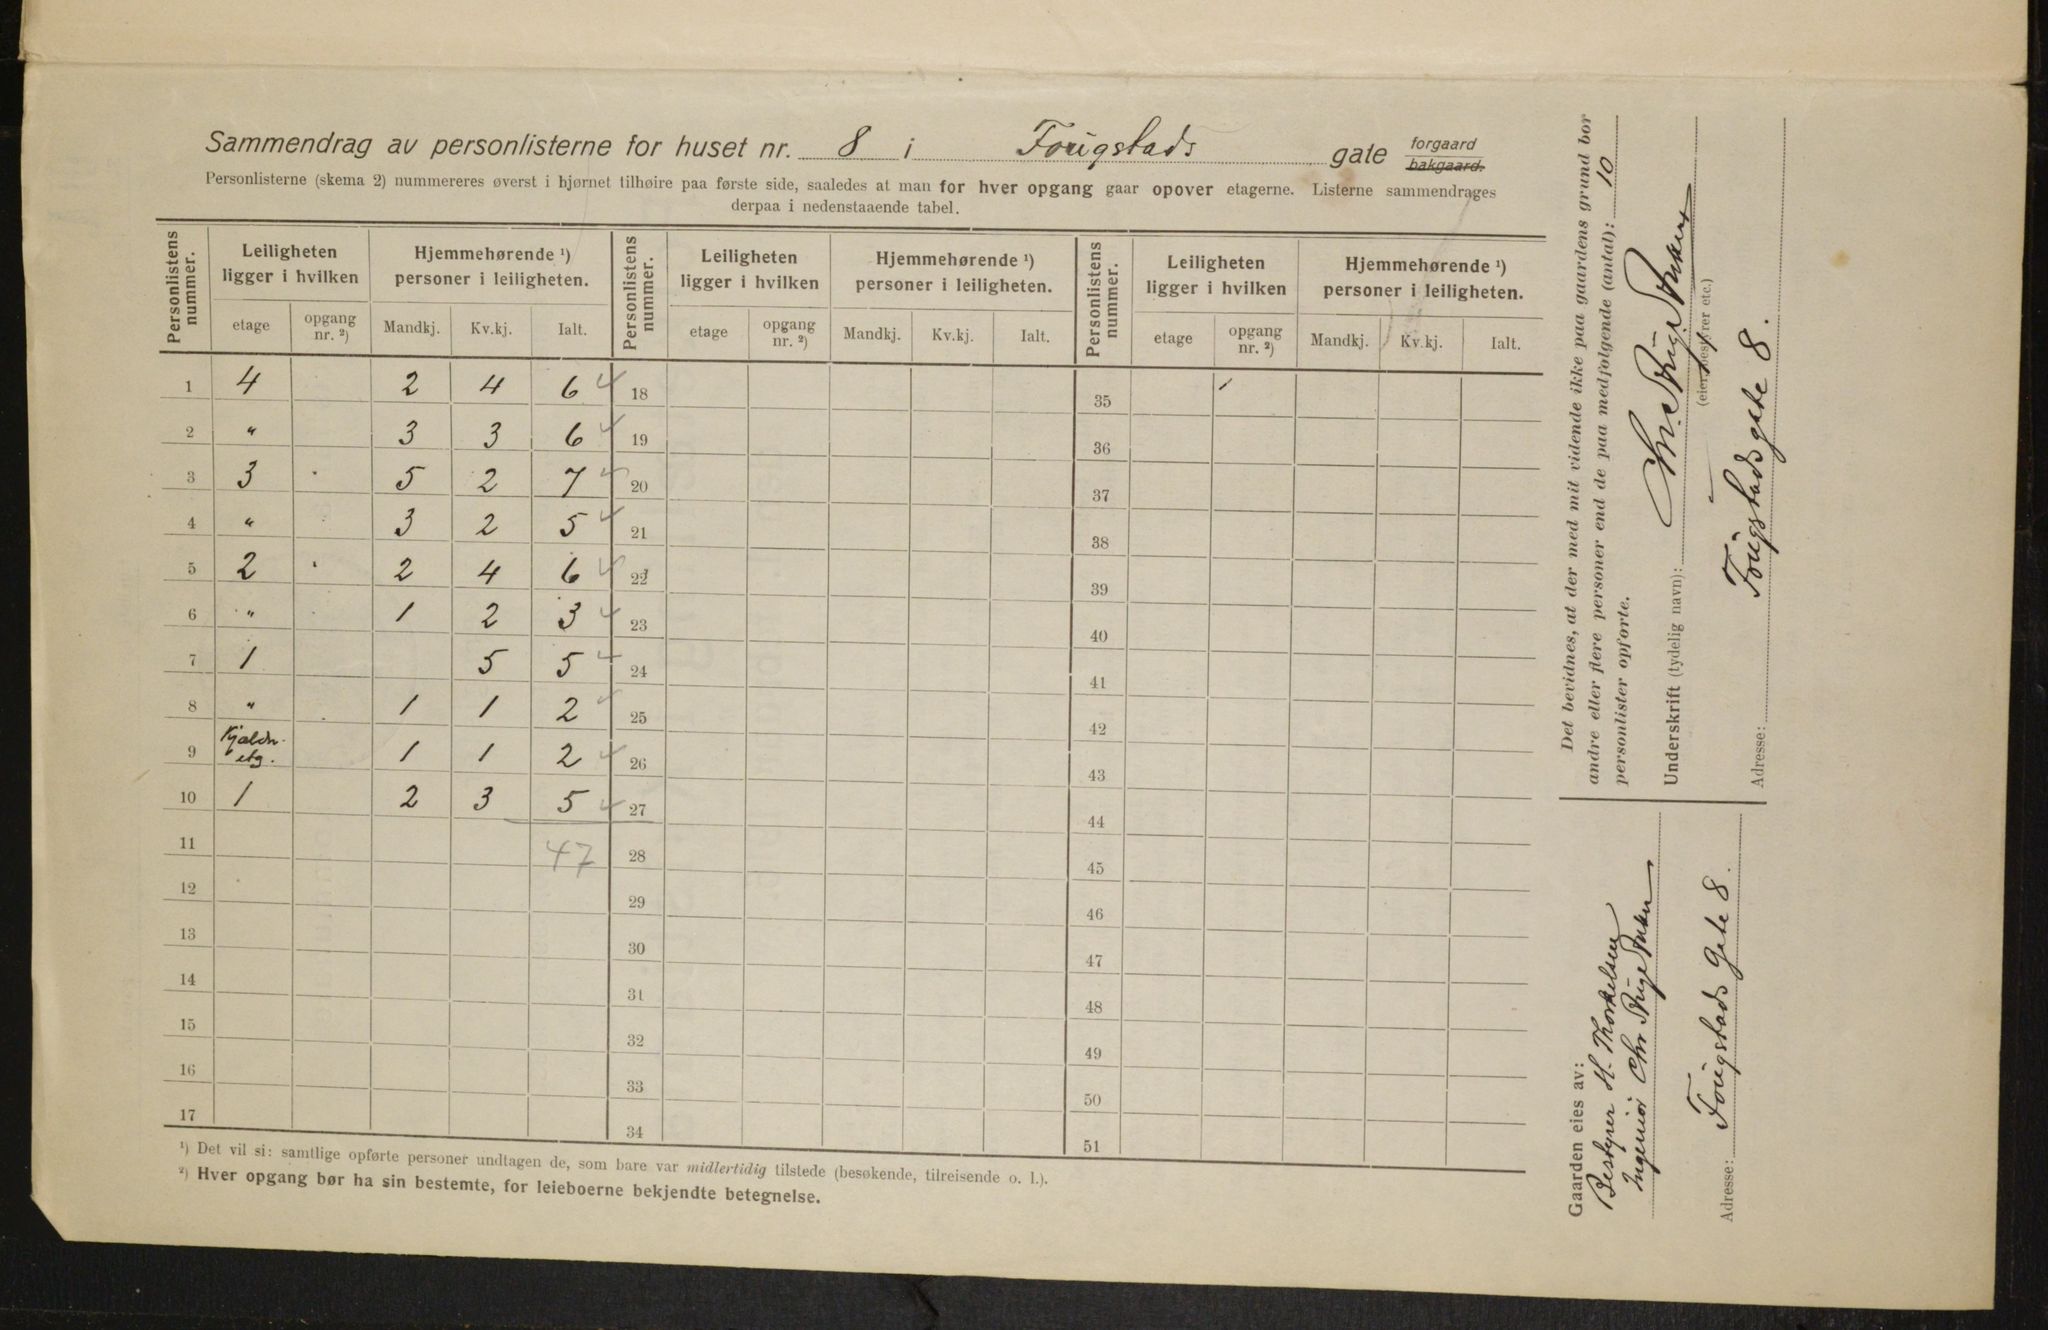 Sammendrag av personlisterne for huset nr. 8 i Fougstads gate forgaard
bakgaard.
Personlisterne (skema 2) nummereres øverst i hjørnet tilhøire paa første side, saaledes at man for hver opgang gaar opover etagerne. Listerne sammendrages
derpaa i nedenstaaende tabel.
Personlistens nummer. Leiligheten ligger i hvilken Hjemmehørende ¹) personer i leiligheten. Personlistens nummer. Leiligheten ligger i hvilken Hjemmehørende ¹) personer i leiligheten. Personlistens nummer. Leiligheten ligger i hvilken Hjemmehørende ¹) personer i leiligheten.
etage opgang nr. ²) Mandkj. Kv.kj. Ialt. etage opgang nr. ²) Mandkj. Kv.kj. Ialt. etage opgang nr. ²) Mandkj. Kv.kj. Ialt.
1 4 2 4 6 18 35
2 " 3 3 6 19 36
3 3 5 2 7 20 37
4 " 3 2 5 21 38
5 2 2 4 6 22 39
6 " 1 2 3 23 40
7 1 5 5 24 41
8 " 1 1 2 25 42
9 Kjelder etg. 1 1 2 26 43
10 1 2 3 5 27 44
11 47 28 45
12 29 46
13 30 47
14 31 48
15 32 49
16 33 50
17 34 51
¹) Det vil si: samtlige opførte personer undtagen de, som bare var midlertidig tilstede (besøkende, tilreisende o. l.).
²) Hver opgang bør ha sin bestemte, for leieboerne bekjendte betegnelse.
Det bevidnes, at der med mit vidende ikke paa gaardens grund bor
andre eller flere personer end de paa medfølgende (antal): 10
personlister opførte.
Underskrift (tydelig navn): Chr.
(eier, bestyrer etc.)
Fougstads gate 8.
Adresse:
Gaarden eies av:
Bestyrer H. Thorkelsen
Ingeniør Chr
Fougstads Gate 8.
Adresse: